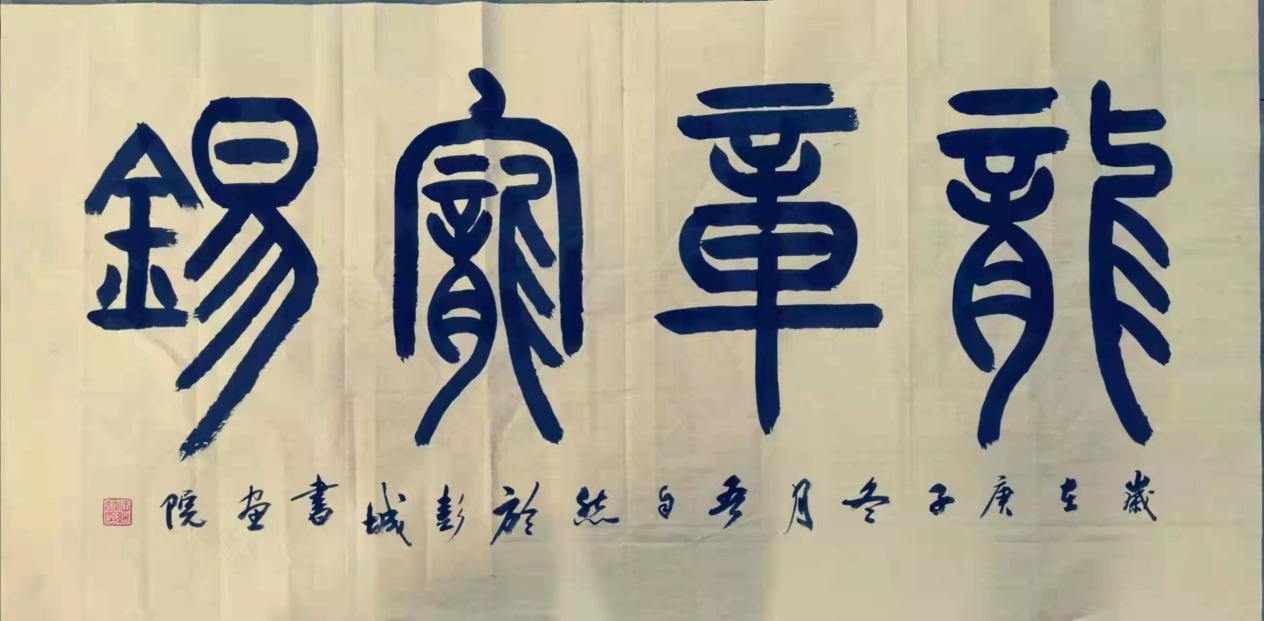 龍章寵錫
歲在庚子冬月吾自然於彭城書画院